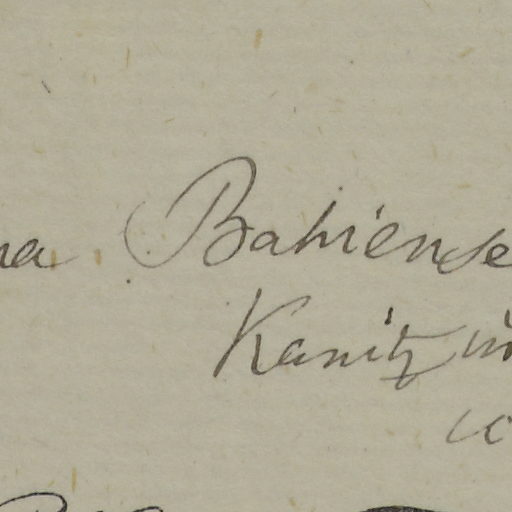 na Bahiense
Kanitz in